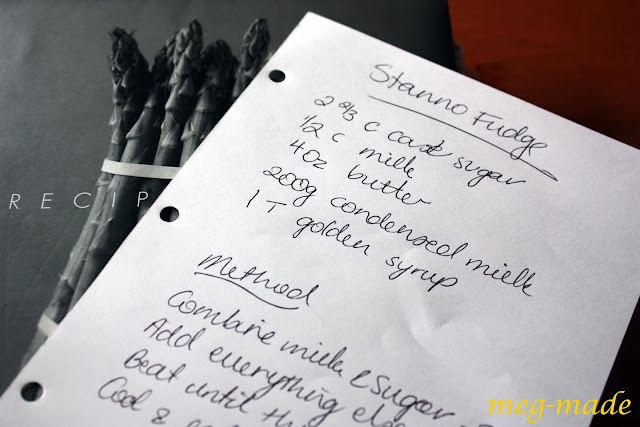 RECIP
Stanno Fudge
2 2/3 c cast sugar
1/2 c milk
4oz butter
200g condensed milk
1 T golden syrup
Method
Combine milk & Sugar
Add everything else
Beat until th
Cool &
meg-made